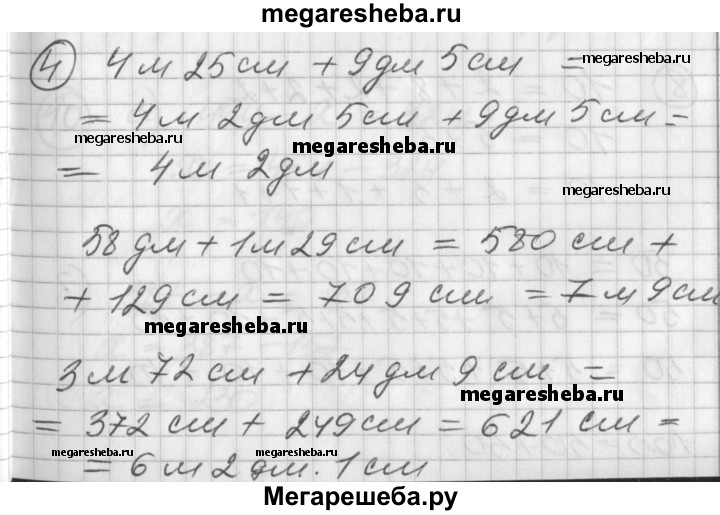 megaresheba.ru
④ 4 м 25 см + 9 дм 5 см =
megaresheba.ru
= 4 м 2 дм 5 см + 9 дм 5 см =
megaresheba.ru
megaresheba.ru
= 4 м 2 дм
megaresheba.ru
58 дм + 1 м 29 см = 580 см +
+ 129 см = 709 см = 7 м 9 см
megaresheba.ru
3 м 72 см + 24 дм 9 см =
megaresheba.ru
= 372 см + 249 см = 621 см =
megaresheba.ru
megaresheba.ru
= 6 м 2 дм. 1 см
Мегарешеба.ру